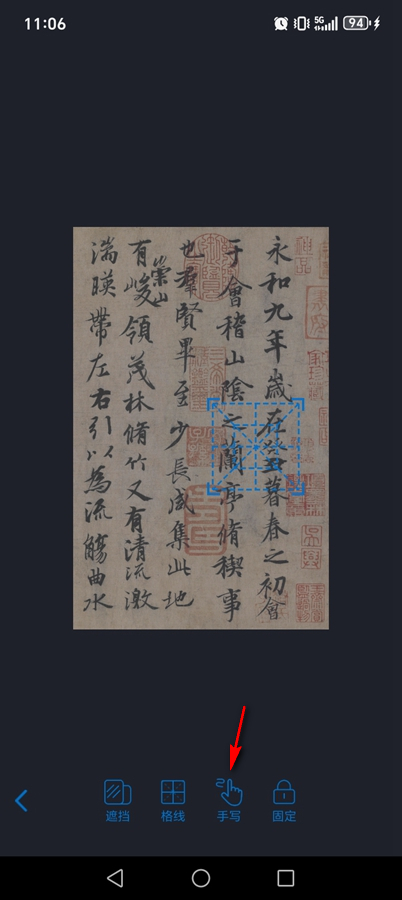 11:06
5G
94
永和九年歲在癸丑暮春之初會
于會稽山陰之蘭亭脩稧事
也羣賢畢至少長咸集此地
有崇山峻領茂林脩竹又有清流激
湍暎帶左右引以為流觴曲水
遮挡
格线
手写
固定